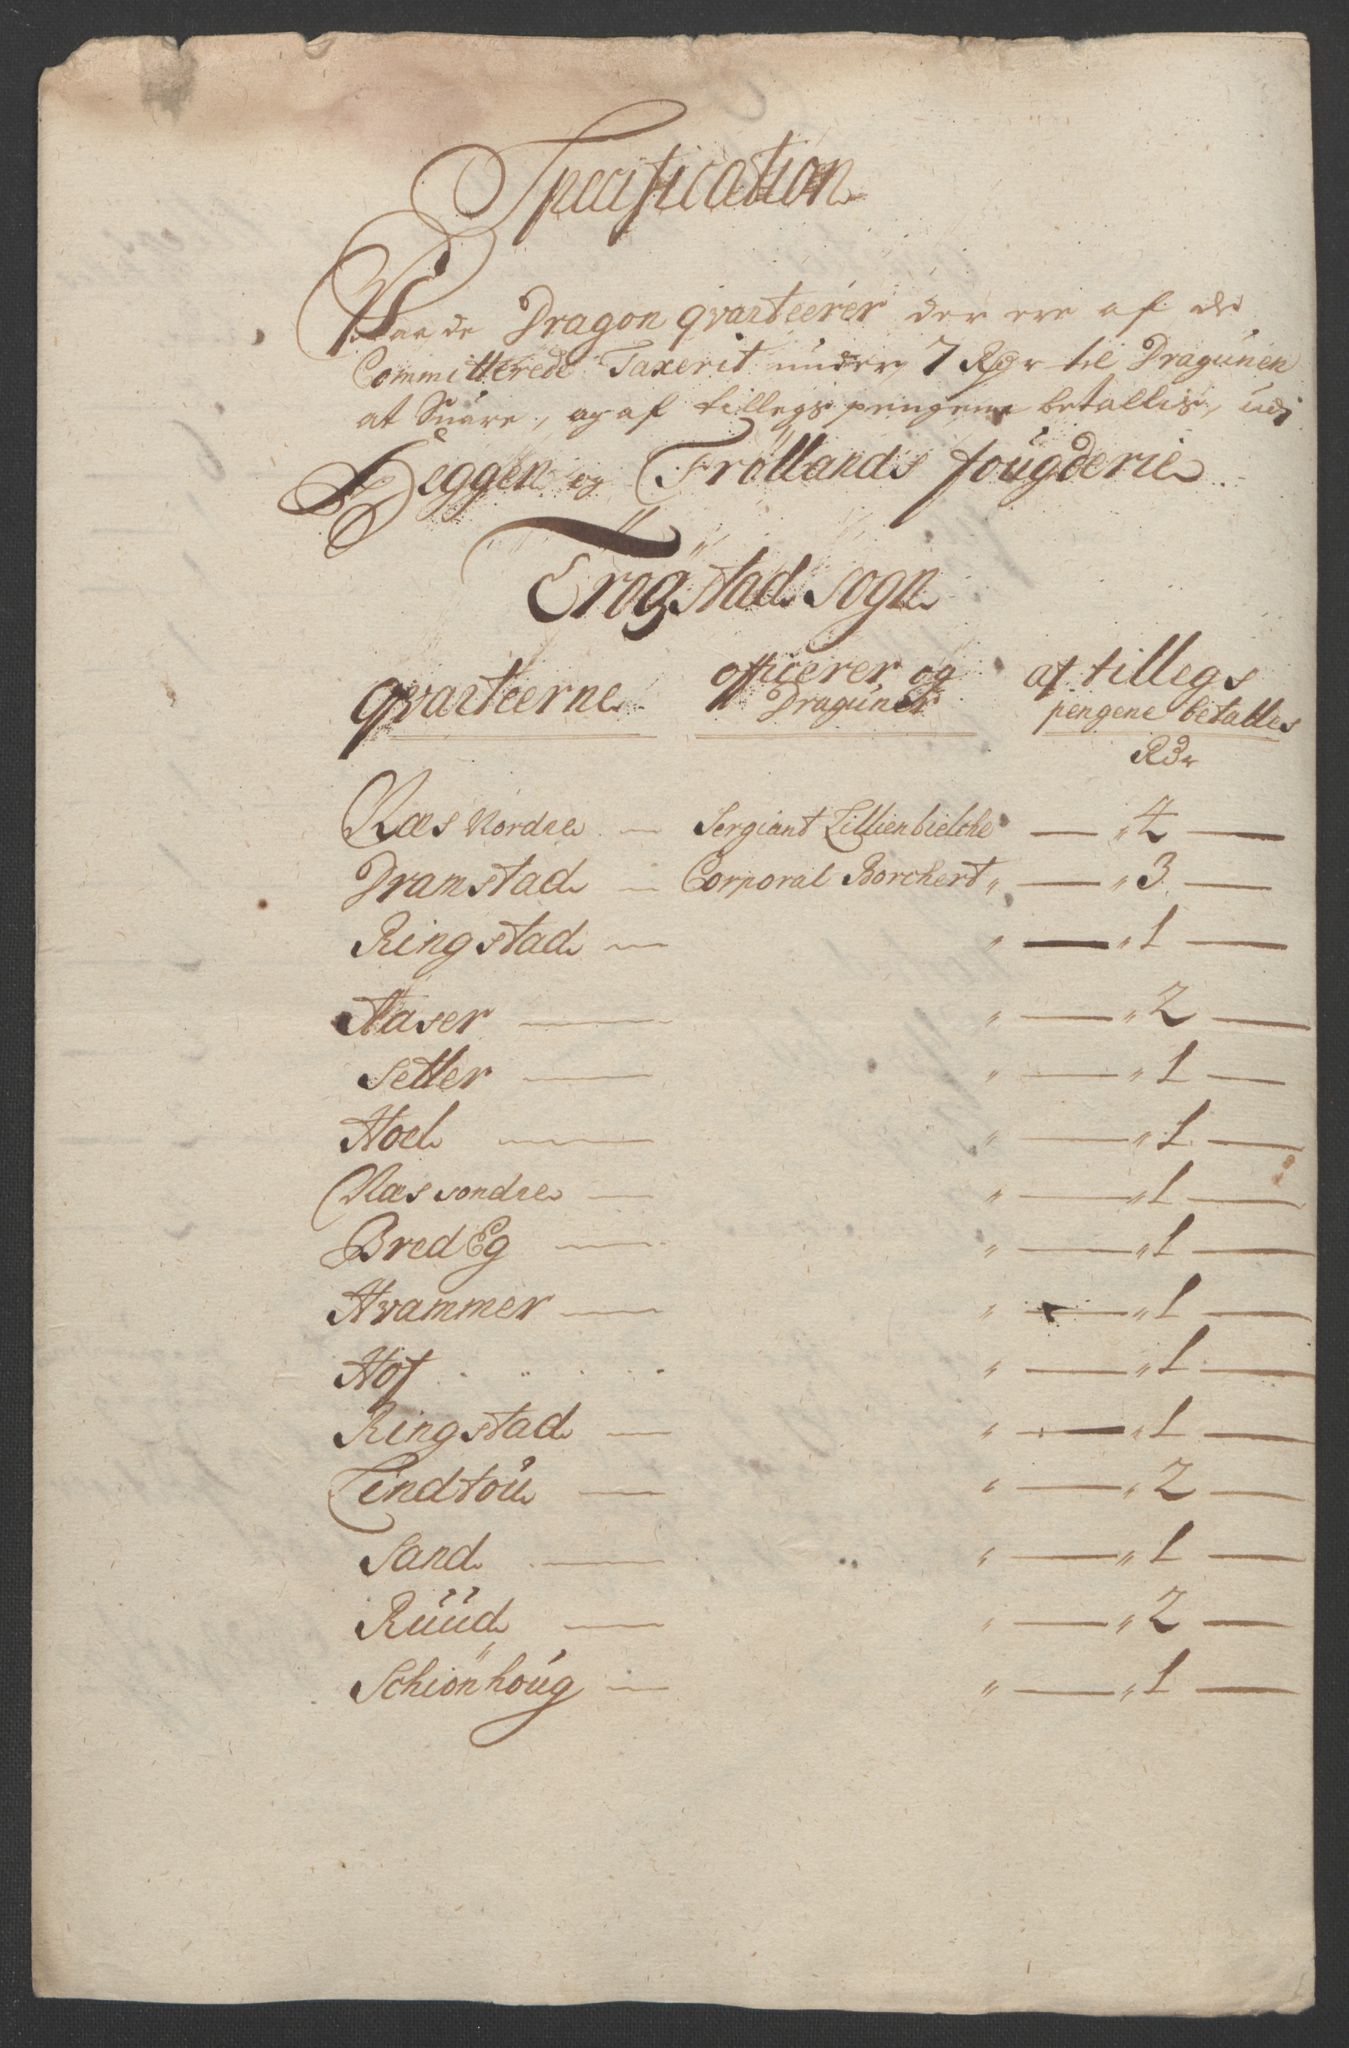 Specification
Paa de Dragon qvarteerer der ere af de
Committerede Taxerit under 7 Rdr til Dragunen
at Suare, og af tillegs pengene betallis, udj
Heggen og Fröllands fougderie
Trögstad sogn
qvarteerne officerer og Dragúner af tillegs pengene betalles
Rdr
Næs Nordre — Sergiant Lillienbielche — „ 4 —
Dramstad — Corporal Borchert „ — „ 3 —
Ringstad — „ — „ 1 —
Aaser — „ — „ 2 —
Setler — „ — „ 1 —
Hoel — „ — „ 1 —
Næs sondre — „ — „ 1 —
Bred Eg — „ — „ 1 —
Hvammer — „ — „ 1 —
Hof . . . . „ — „ 1 —
Ringstad — „ — „ 1 —
Lindtoü — „ — „ 2 —
Sand — „ — „ 1 —
Rüüd — „ — „ 2 —
Schiönhoúg — „ — „ 1 —